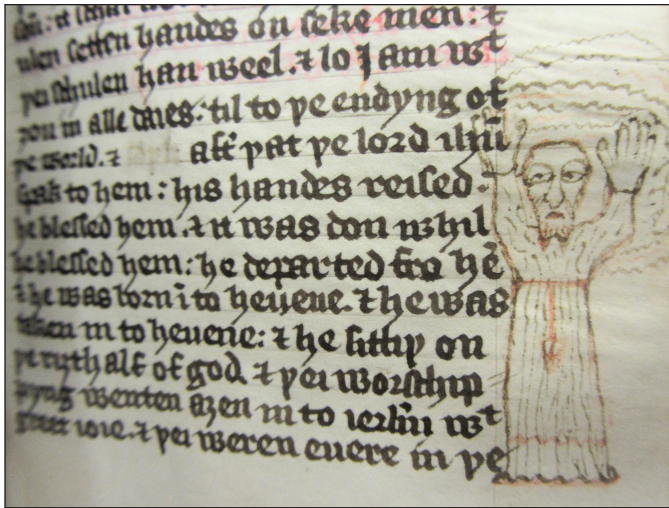 it schal no
ulen setten handes on seke men: ⁊
þei schulen han weel. ⁊ lo I am wᵗ
ȝou in alle daies: til to þe endyng of
þe world. ⁊ aft̄ þat þe lord ih̄u
spak to hem: his handes reised.
he blessed hem. ⁊ it was don whil
he blessed hem: he departed fro hē
⁊ he was born ī to heuene. ⁊ he was
taken in to heuene: ⁊ he sittiþ on
þe ryȝthalf of god. ⁊ þei worschip
pyng wenten aȝen in to ierl̄m wᵗ
greet ioie. ⁊ þei weren euere in þe